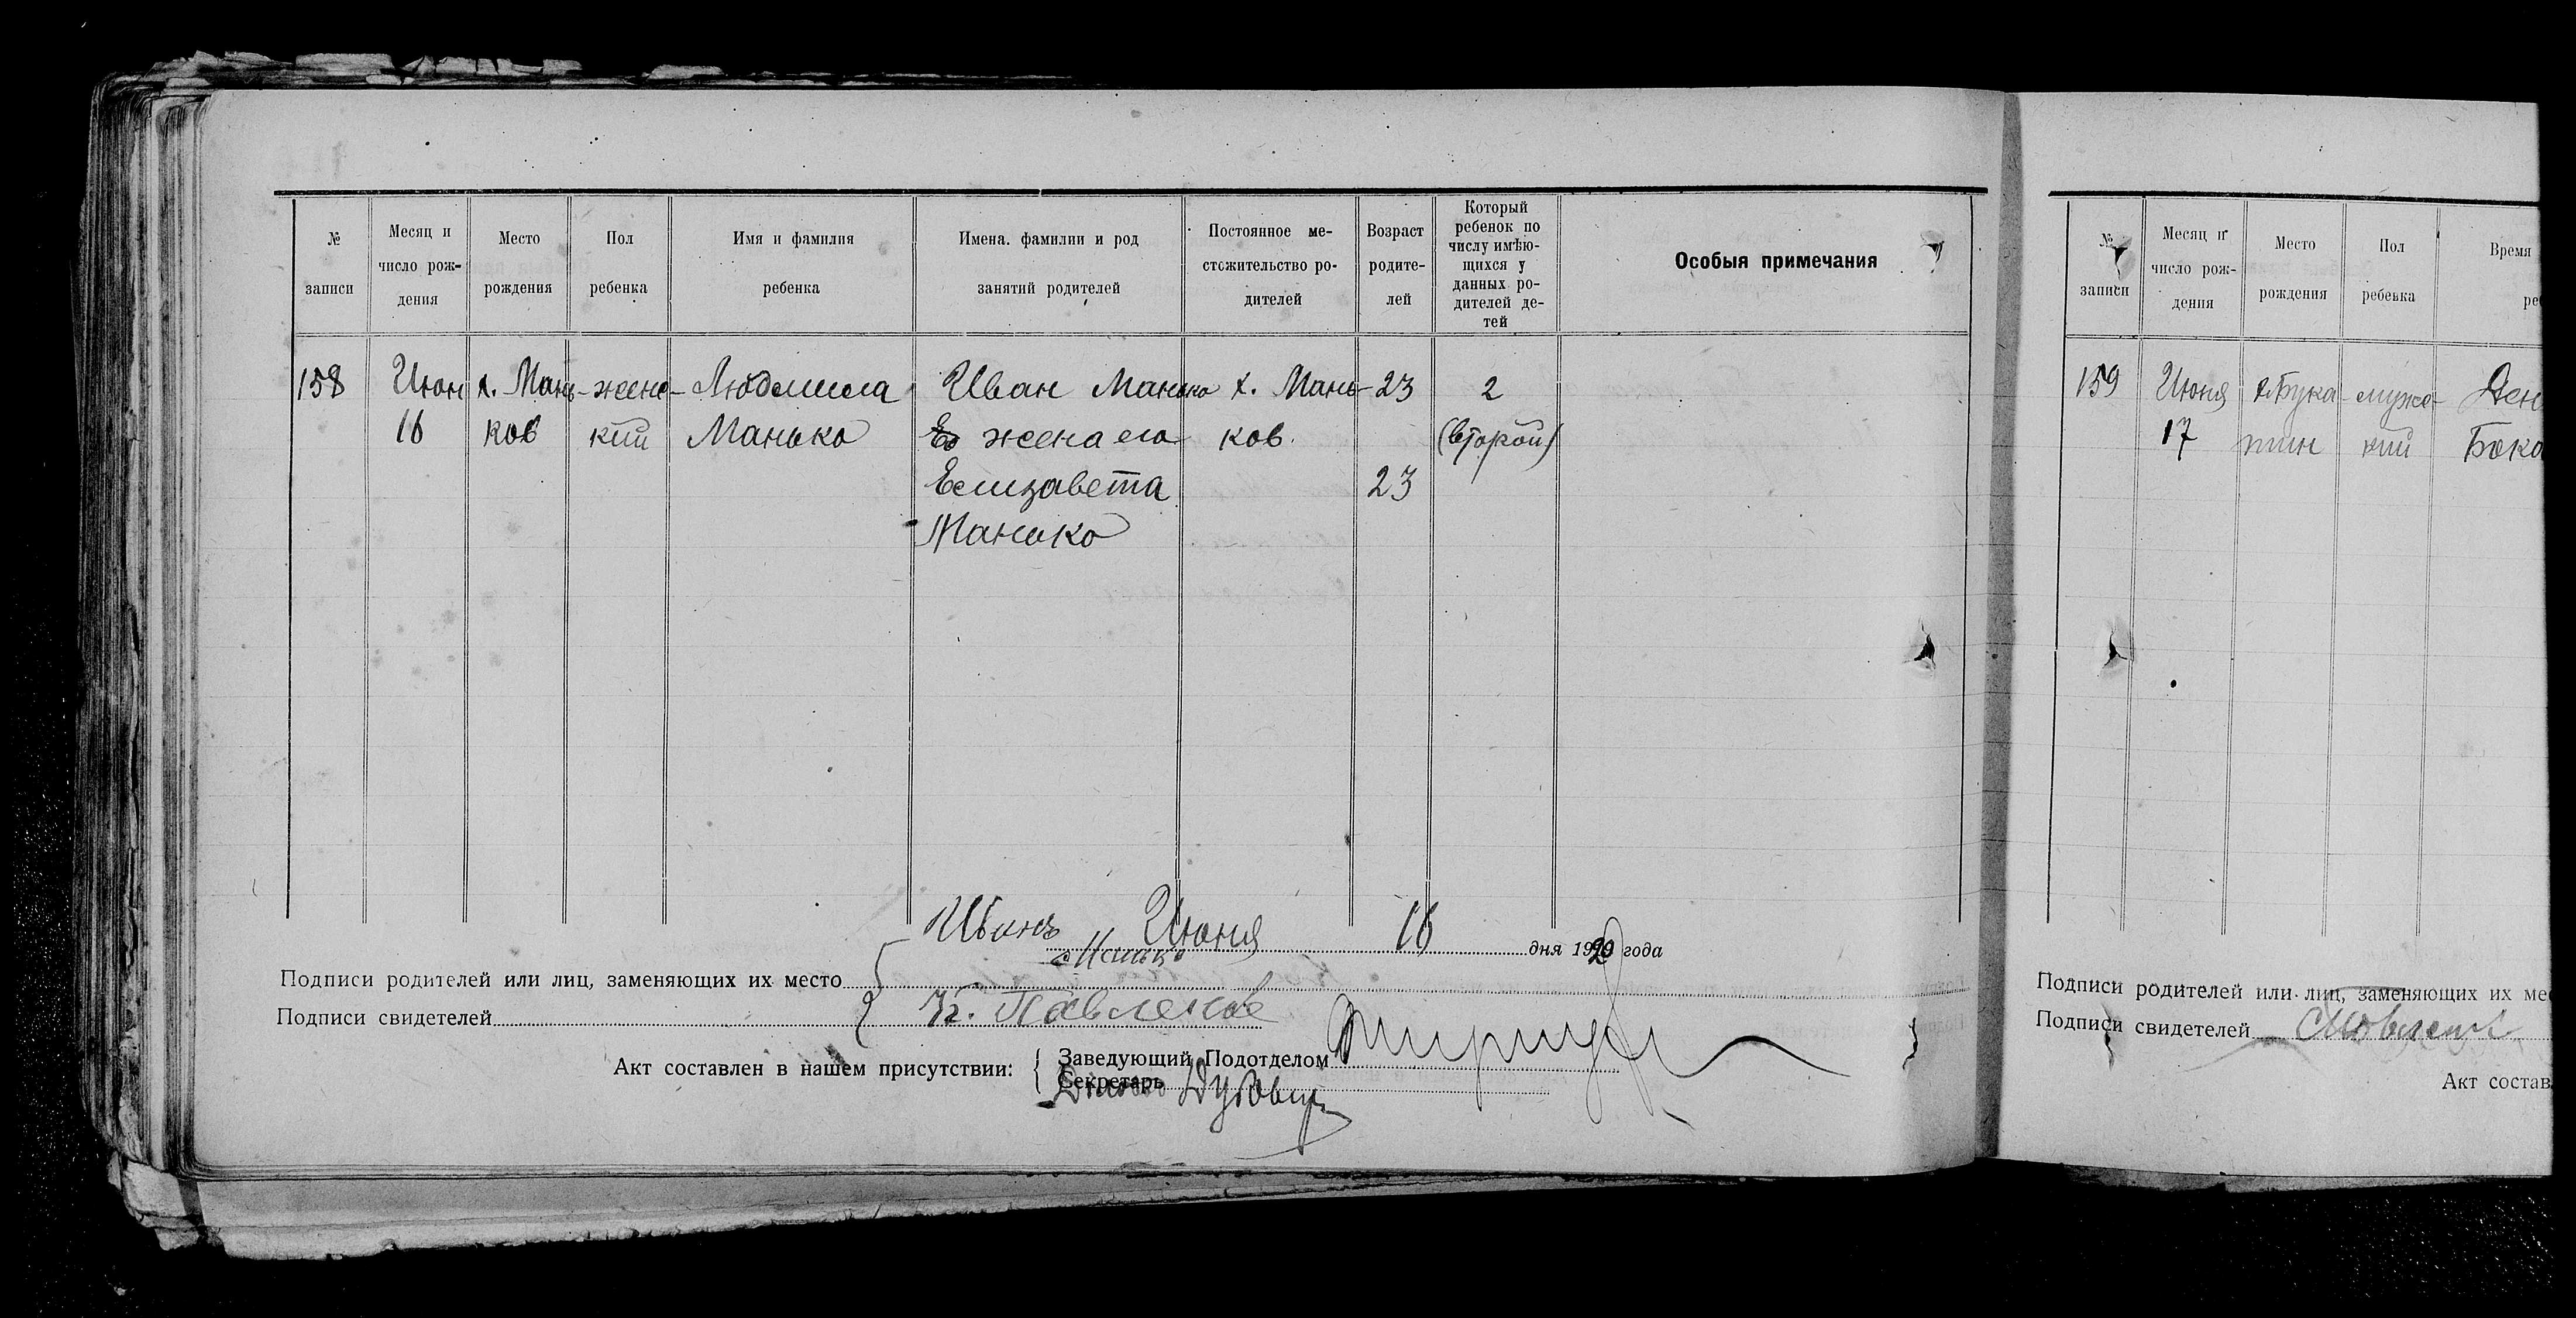 № записи
Месяц и число рождения
Место рождения
Пол ребенка
Имя и фамилия ребенка
Имена. фамилии и род занятий родителей
Постоянное местожительство родителей
Возраст родителей
Который ребенок по числу имѣющихся у данных родителей детей
Особыя примечания
158 Июн х. Мань- женс- Людмила Иван Манько х. Мань- 23 2
16 ков кий Манько жена его ков. (второй)
Елизавета 23
Манько
Иван Июня 16 дня 1920 года
Манько
Подписи родителей или лиц, заменяющих их место
Подписи свидетелей К. Павленко
Акт составлен в нашем присутствии: Заведующий Подотделом
Секретарь
№ записи
Месяц и число рождения
Место рождения
Пол ребенка
Время
ре
159 Июня мужс- Ден
17 кий
Подписи родителей или лиц, заменяющих их ме
Подписи свидетелей
Акт состав